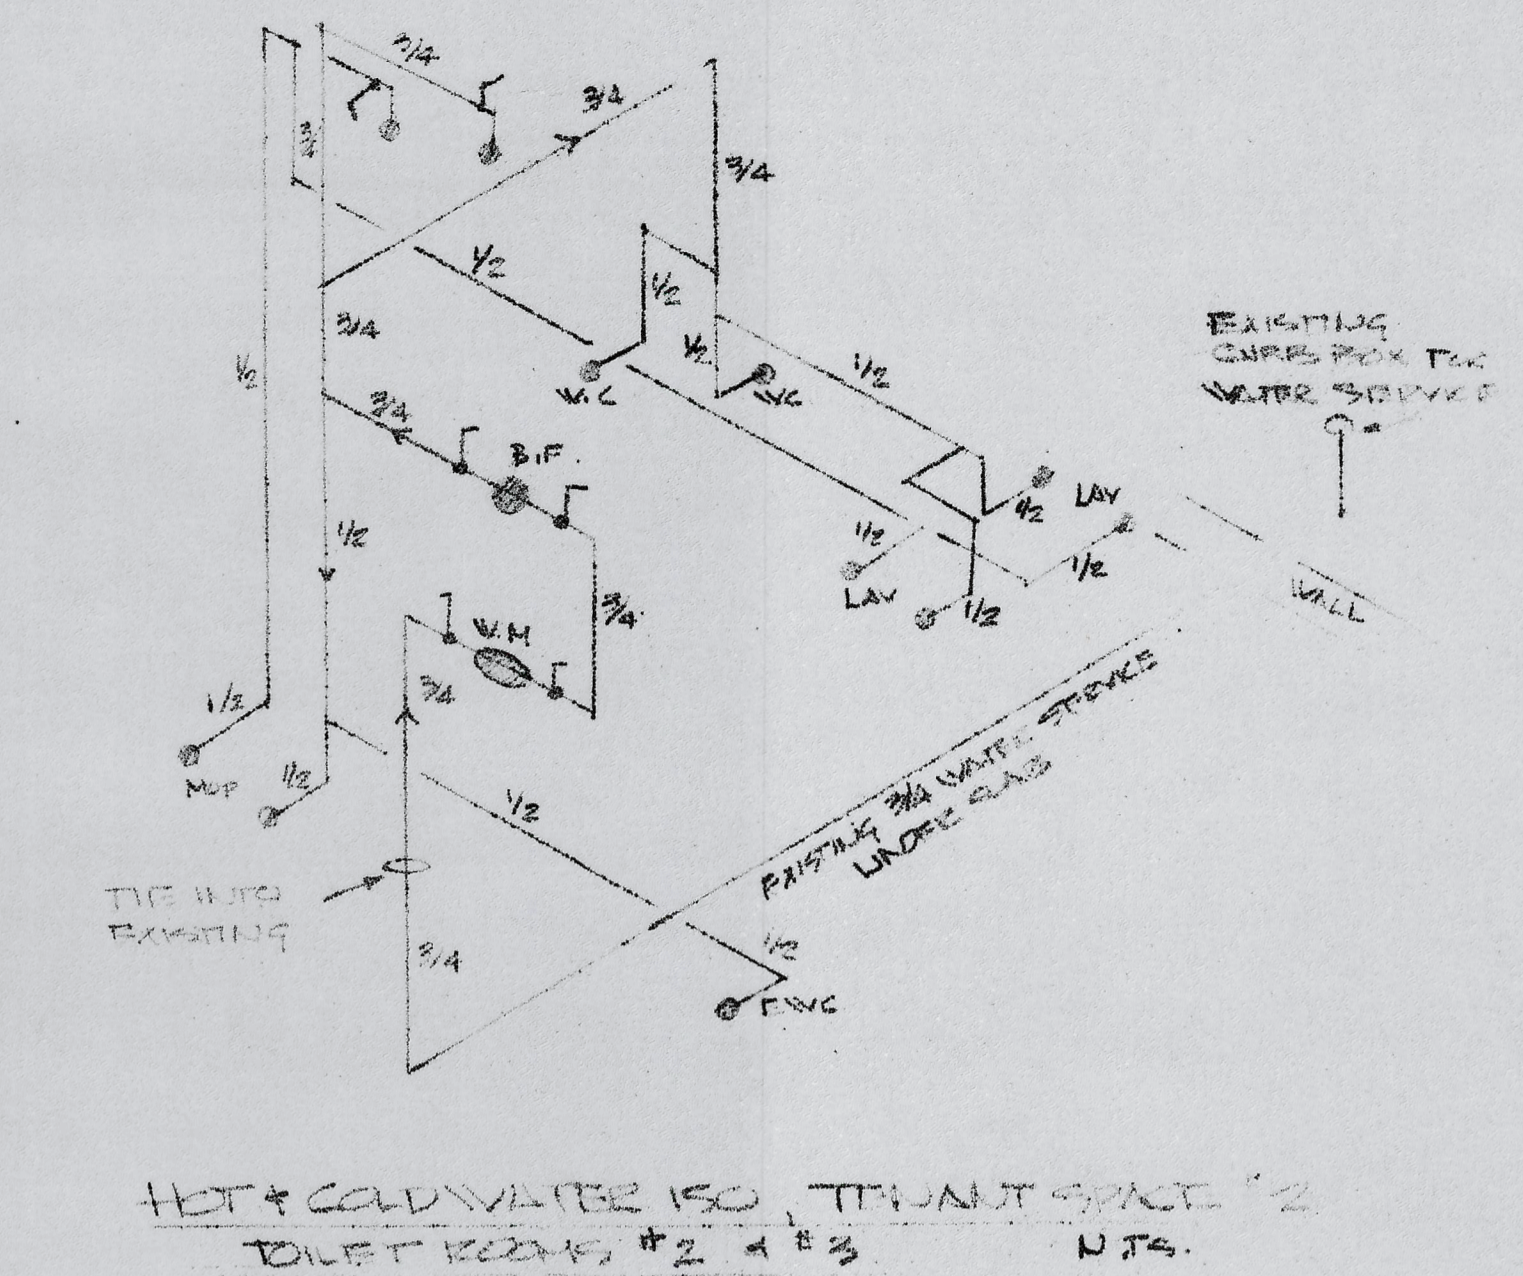 3/4
3/4
3/4
3/4
1/2
1/2
3/4
1/2
1/2
W.C
WC
1/2
EXISTING
CURB BOX FOR
WATER SERVICE
3/4
B.F.
1/2
LAV
1/2
1/2
LAV
1/2
1/2
WALL
3/4
W.M
3/4
1/2
MOP
1/2
1/2
EXISTING 3/4 WATER SERVICE
UNDER SLAB
TIE INTO
EXISTING
3/4
1/2
EWC
HOT & COLD WATER ISO, TENANT SPACE #2
TOILET ROOMS #2 & #3 N.T.S.